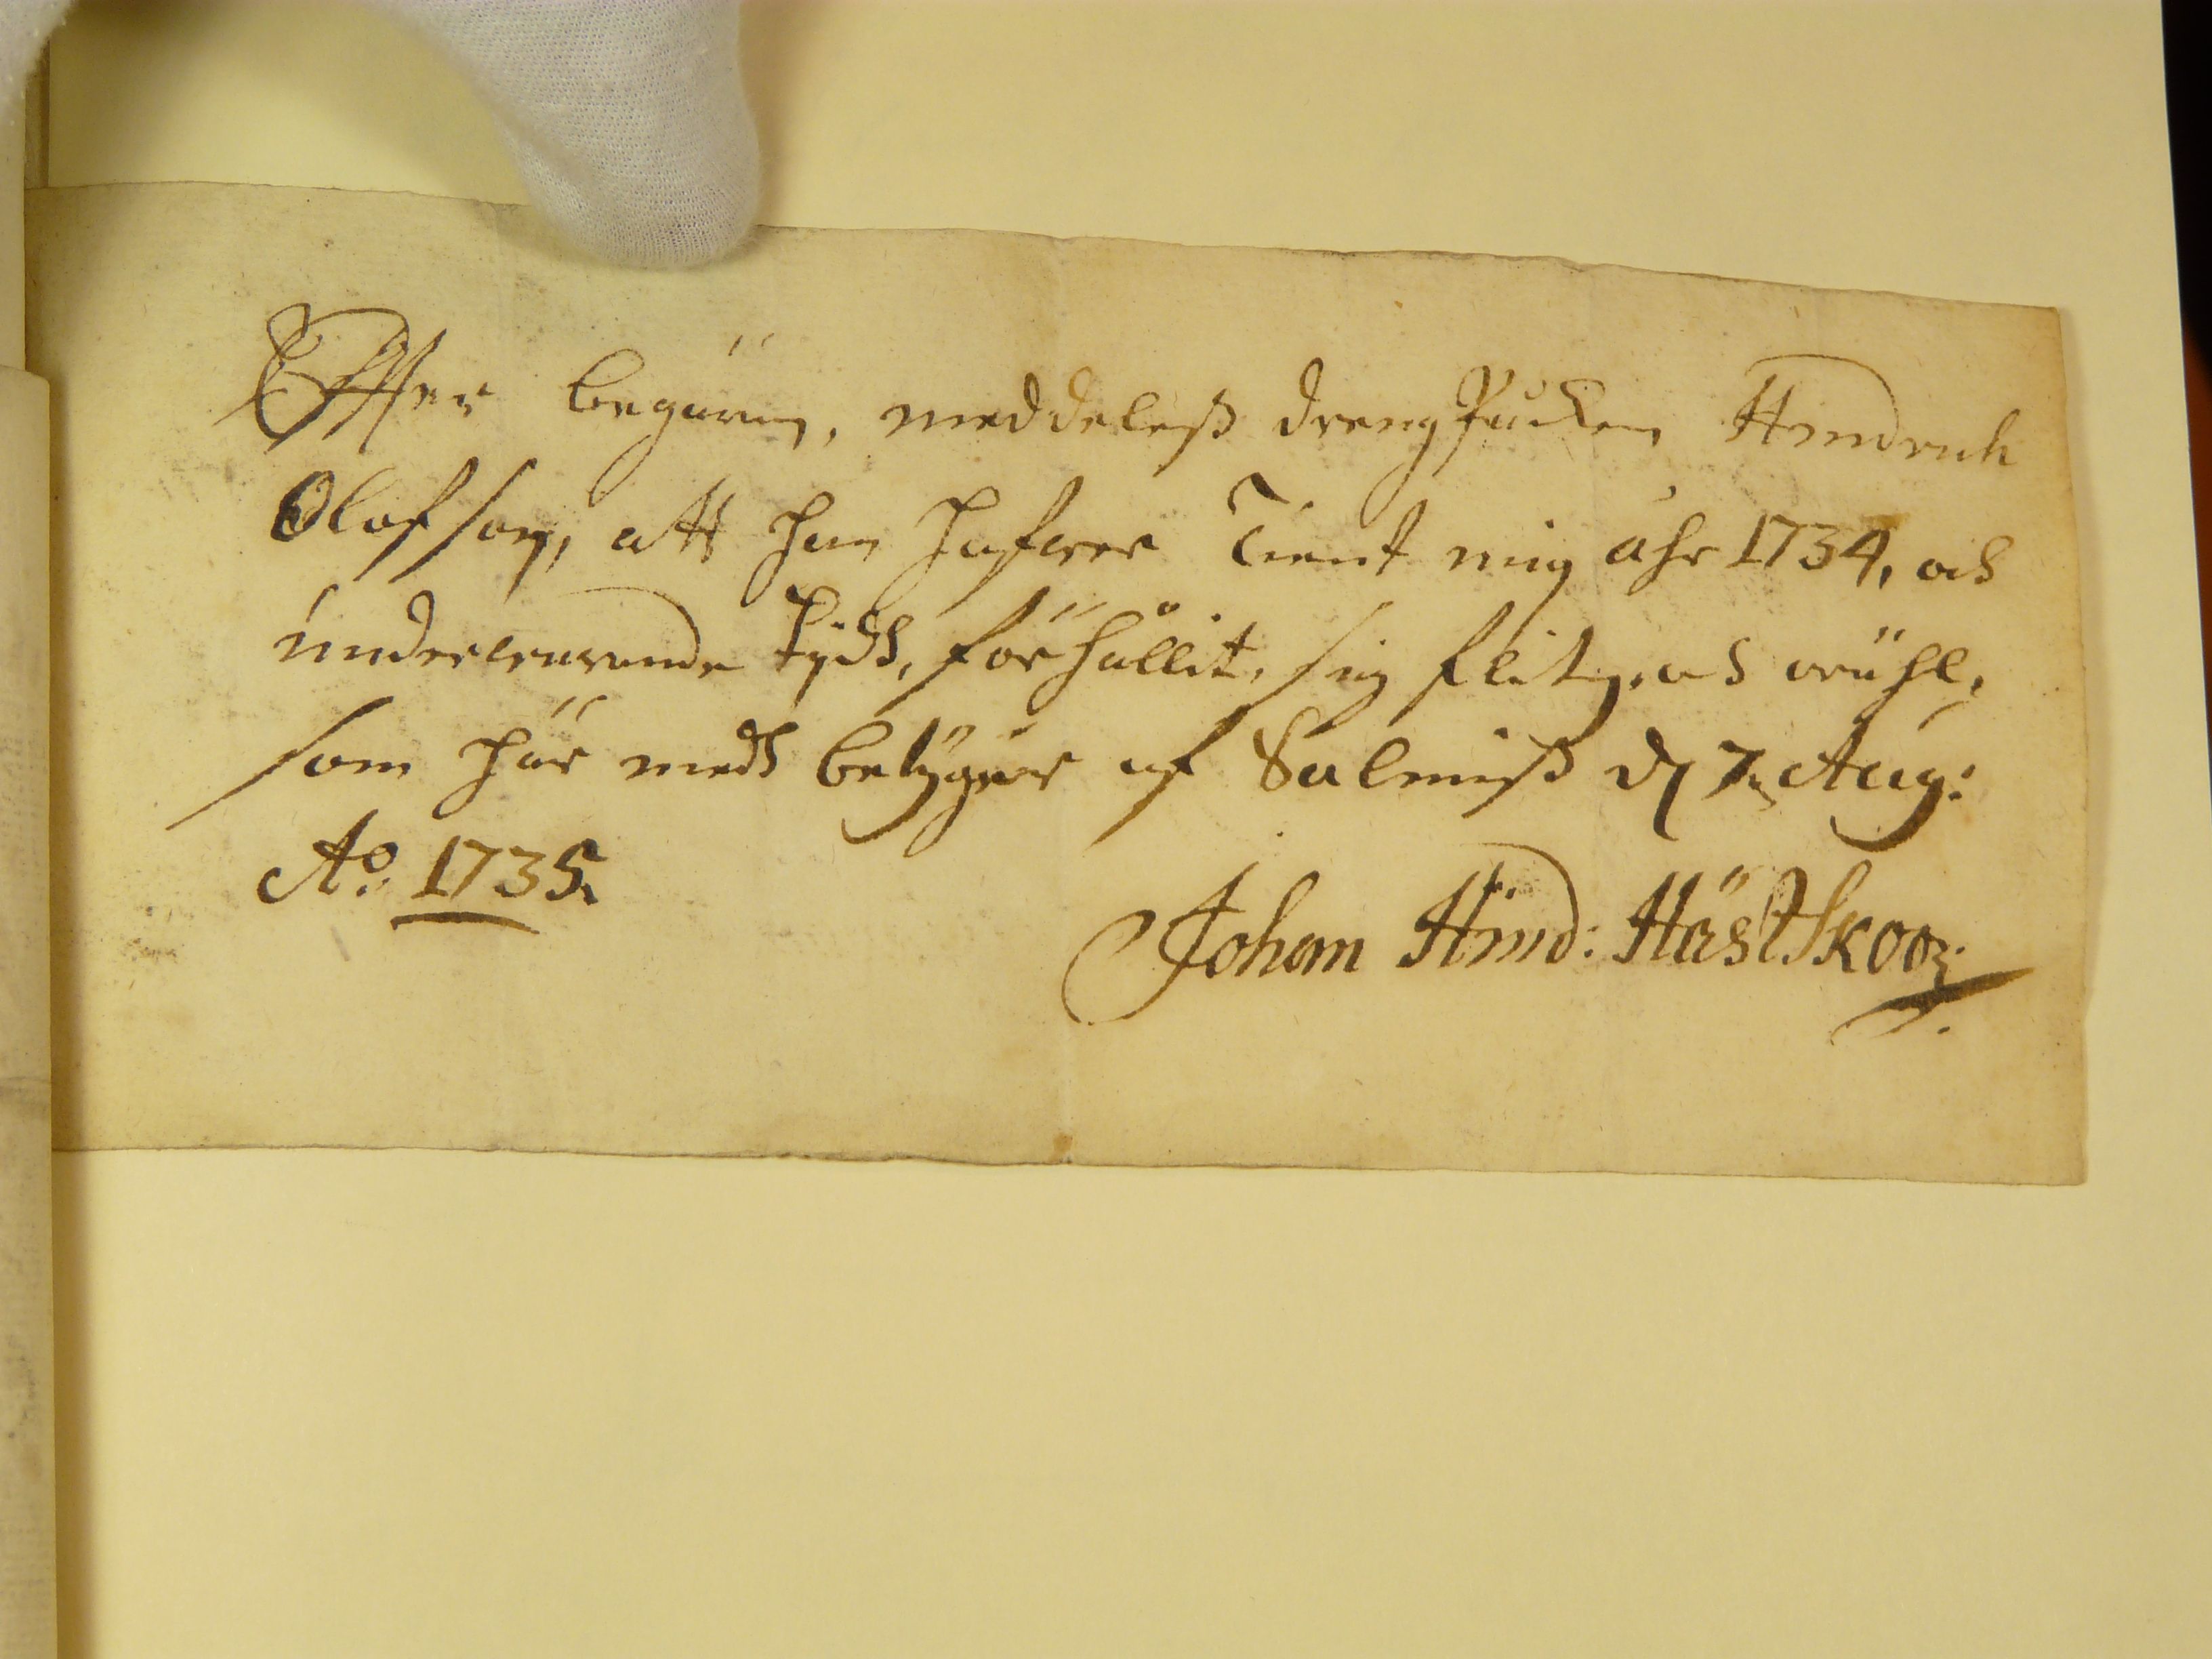 Effter begäran, meddeless drengPåicken Hindrich
Olofson, att han hafwer Tient mig åhr 1734, och
underwarande tydh, förhållit, sig flitig, och wähl,
som här medh betÿgar af Salmiss dn 7. Aug:
Ao: 1735.
Johan Hind: Hästskoo